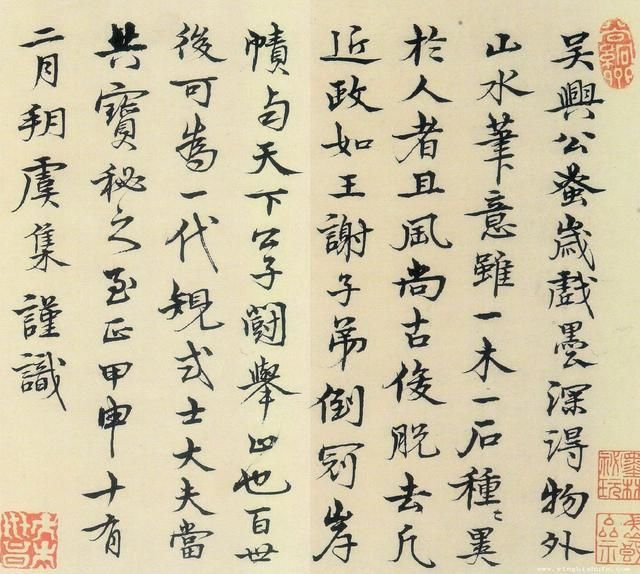 吳興公蚤歲戲墨深得物外
山水筆意雖一木一石種〻異
於人者且風尚古俊脫去凡
近政如王謝子弟倒冠岸
幘与天下公子鬭舉止也百世
後可為一代規式士大夫當
共寶秘之至正甲申十有
二月朔虞集謹識
墨林祕玩